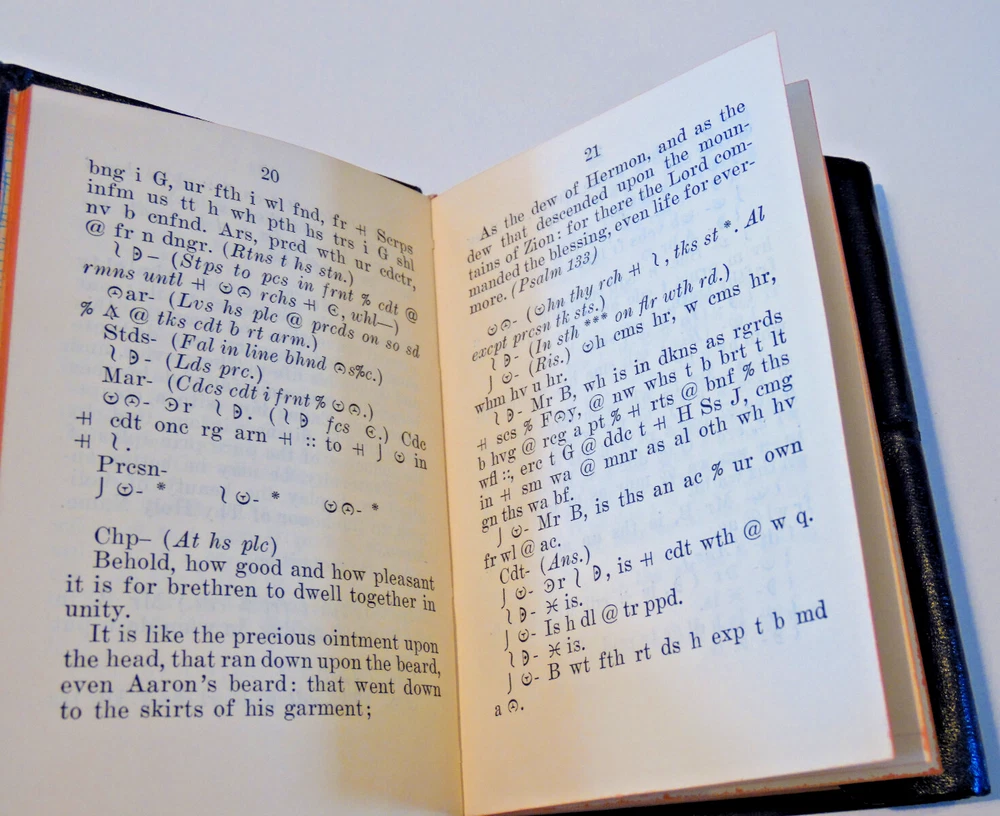 20
bng i G, ur fth i wl fnd, fr Scrps
infm us tt h wh pth hs trs i G shl
nv b cnfnd. Ars, pred wth ur cdctr,
@ fr n dngr. (Rtns t hs stn.)
(Stps to pcs in frnt % cdt @
rmns untl rchs whl—)
ar- (Lvs hs plc @ prcds on so sd
% @ tks cdt b rt arm.)
Stds- (Fal in line bhnd s%c.)
(Lds prc.)
Mar- (Cdcs cdt i frnt %
r ( fcs .) Cdc
cdt onc rg arn :: to in
Prcsn-
* * *
Chp– (At hs plc)
Behold, how good and how pleasant
it is for brethren to dwell together in
unity.
It is like the precious ointment upon
the head, that ran down upon the beard,
even Aaron's beard: that went down
to the skirts of his garment;
21
As the dew of Hermon, and as the
dew that descended upon the moun-
tains of Zion: for there the Lord com-
manded the blessing, even life for ever-
more. (Psalm 133)
(hn thy rch , tks st *. Al
excpt prcsn tk sts.)
(In sth *** on flr wth rd.)
(Ris.) h cms hr, w cms hr,
whm hv u hr.
Mr B, wh is in dkns as rgrds
scs % F y, @ nw whs t b brt t lt
b hvg @ rcg a pt % rts @ bnf % ths
wfl ::, erc t G @ ddc t H Ss J, cmg
in sm wa @ mnr as al oth wh hv
gn ths wa bf.
Mr B, is ths an ac % ur own
fr wl @ ac.
Cdt- (Ans.)
r , is cdt wth @ w q.
is.
Is h dl @ tr ppd.
is.
B wt fth rt ds h exp t b md
a .